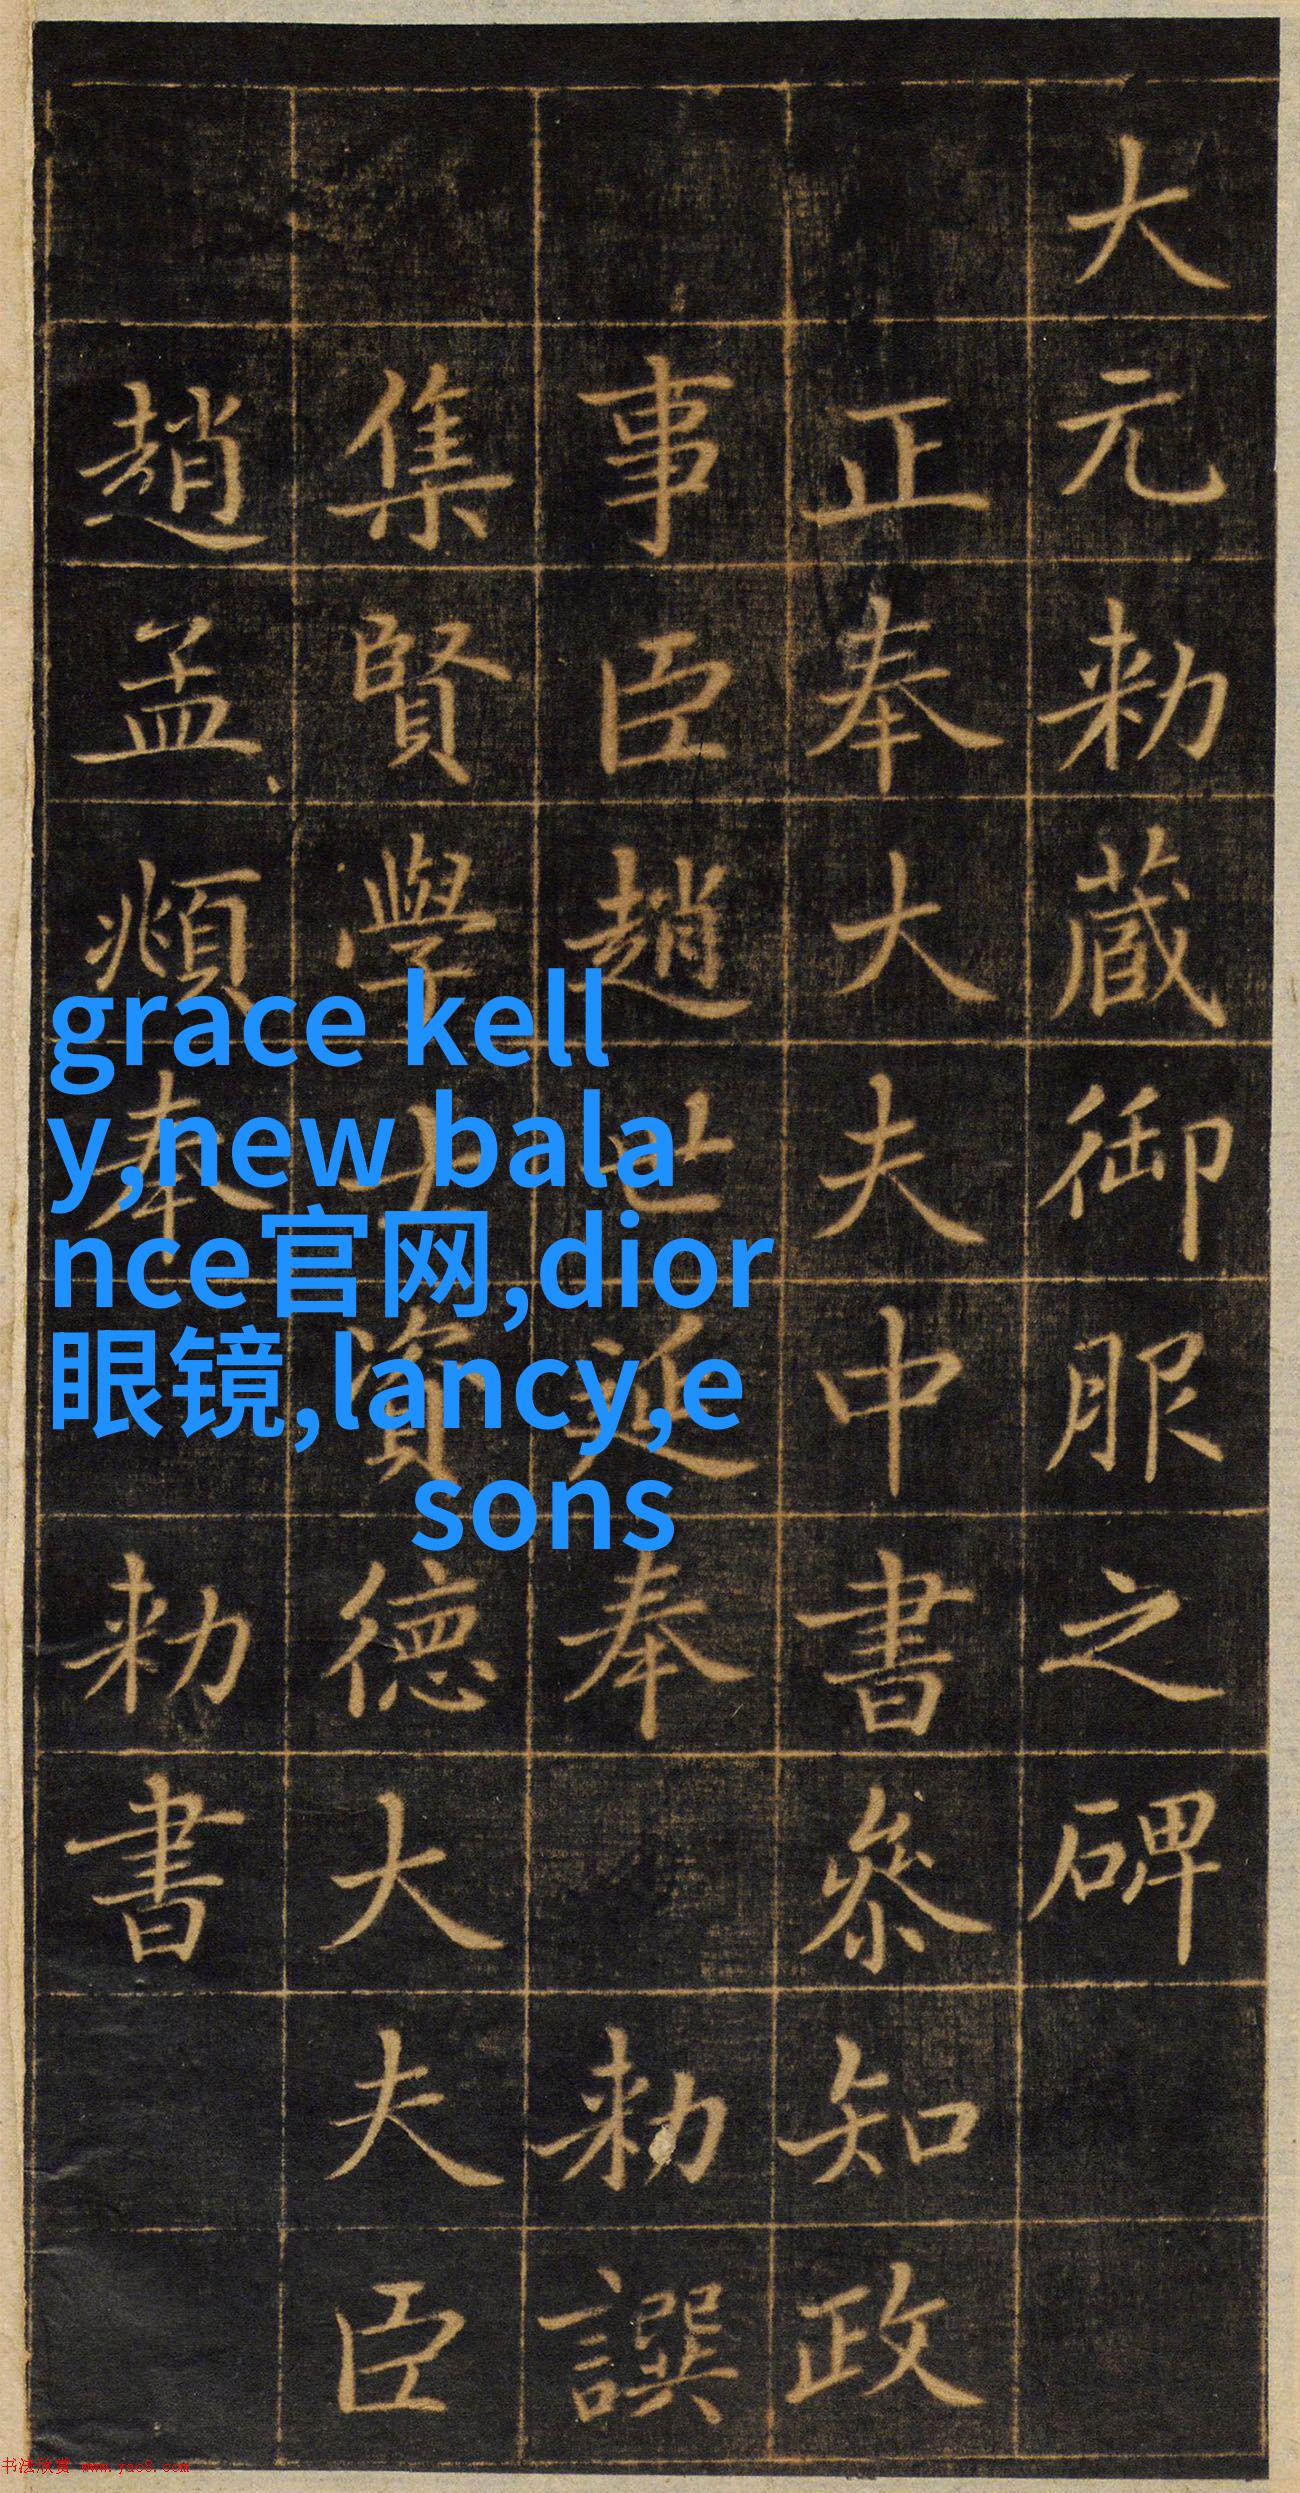 大元勑藏御服之碑
正奉大夫中書叅知政
事臣趙世延奉 勑譔
集賢學士資德大夫臣
趙孟頫奉 勑書
grace kell
y,new bala
nce官网,dior
眼镜,lancy,e
sons
书法欣赏 www.yac8.com